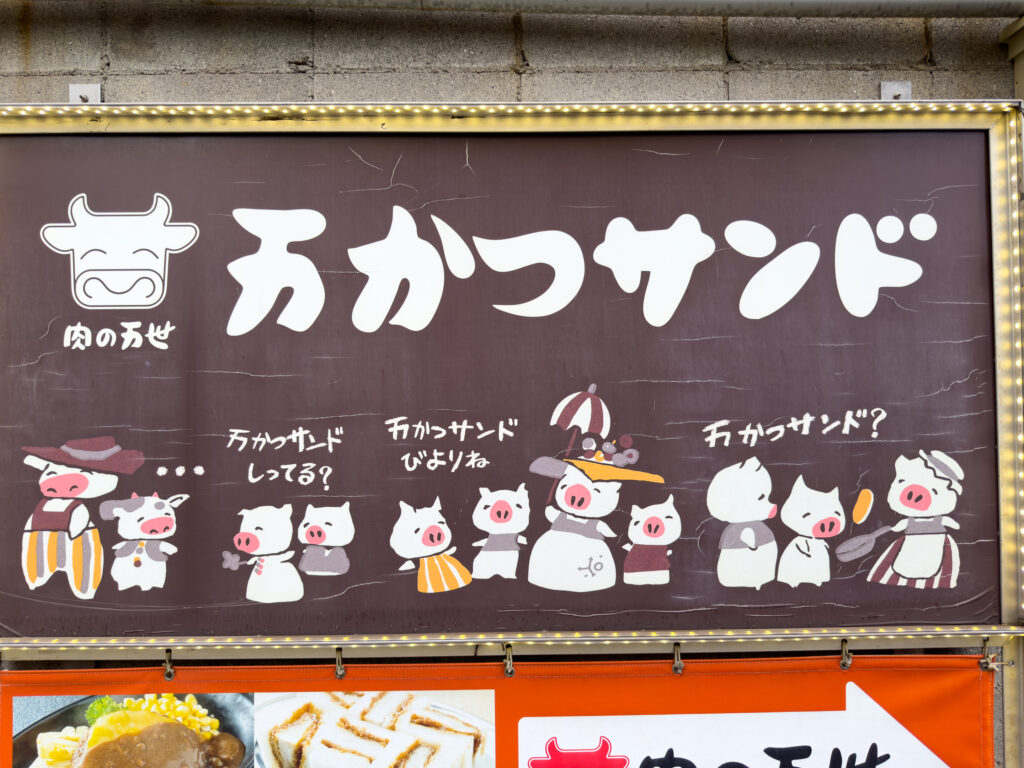 万かつサンド
肉の万世
万かつサンド
しってる?
万かつサンド
びよりね
万かつサンド?
肉の万世